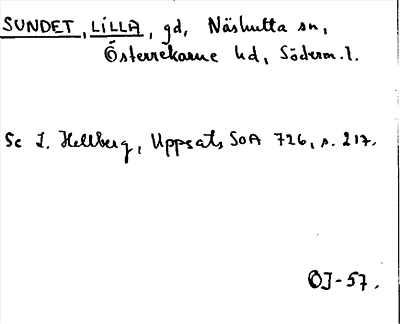 SUNDET, LILLA, gd, Näshulta sn,
Österrekarne hd, Söderm. l.
Se L. Hellberg, Uppsats SOA 726, s. 217.
OJ-57.